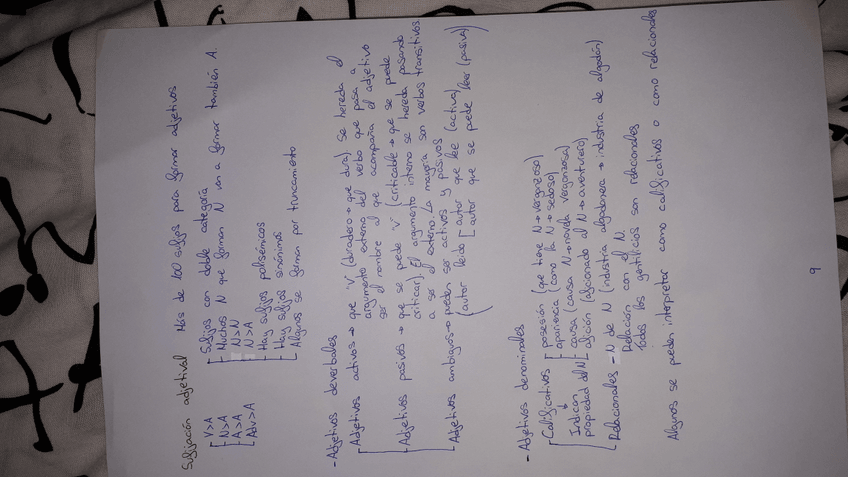 Sufijación adjetival Más de 100 sufijos para formar adjetivos
V>A
N>A
A>A
Adv>A
Sufijos con doble categoría
Muchos N que forman N van a formar también A.
N>N
N>A
Hay sufijos polisémicos
Hay sufijos sinónimos
Algunos se forman por truncamiento
- Adjetivos deverbales
Adjetivos activos → que "V" (duradero → que dura) Se hereda el
argumento externo del verbo que pasa a
ser el nombre al que acompaña el adjetivo
Adjetivos pasivos → que se puede "V" (criticable → que se puede
criticar). El argumento interno se hereda pasando
a ser el externo. La mayoría son verbos transitivos
Adjetivos ambiguos → pueden ser activos y pasivos
(autor leído [ autor que lee (activa)
autor que se puede leer (pasiva)
- Adjetivos denominales
Calificativos
Indican
propiedad del N
posesión (que tiene N → vergonzoso)
apariencia (como la N → sedoso)
causa (causa N → novela vergonzosa)
afición (aficionado al N → aventurero)
Relacionales - N de N (industria algodonera → industria de algodón)
Relación con el N.
Todos los gentilicios son relacionales
Algunos se pueden interpretar como calificativos o como relacionales
9